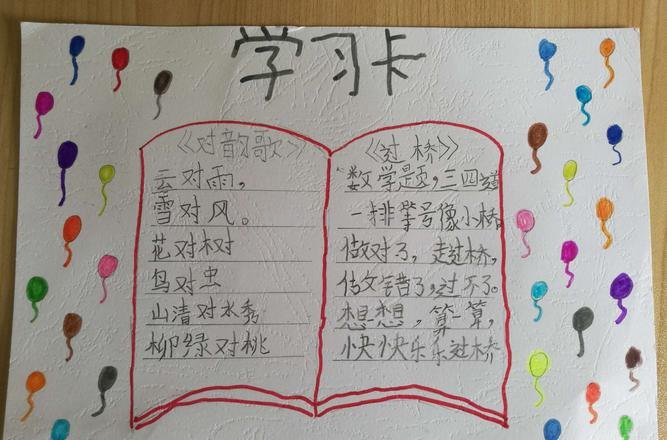 学习卡
《对韵歌》
云对雨，
雪对风。
花对树
鸟对虫
山清对水秀
柳绿对桃
《过桥》
数学题，三四道
一排等号像小桥
做对了，走过桥，
做错了，过不了。
想想，算算，
快快乐乐过桥